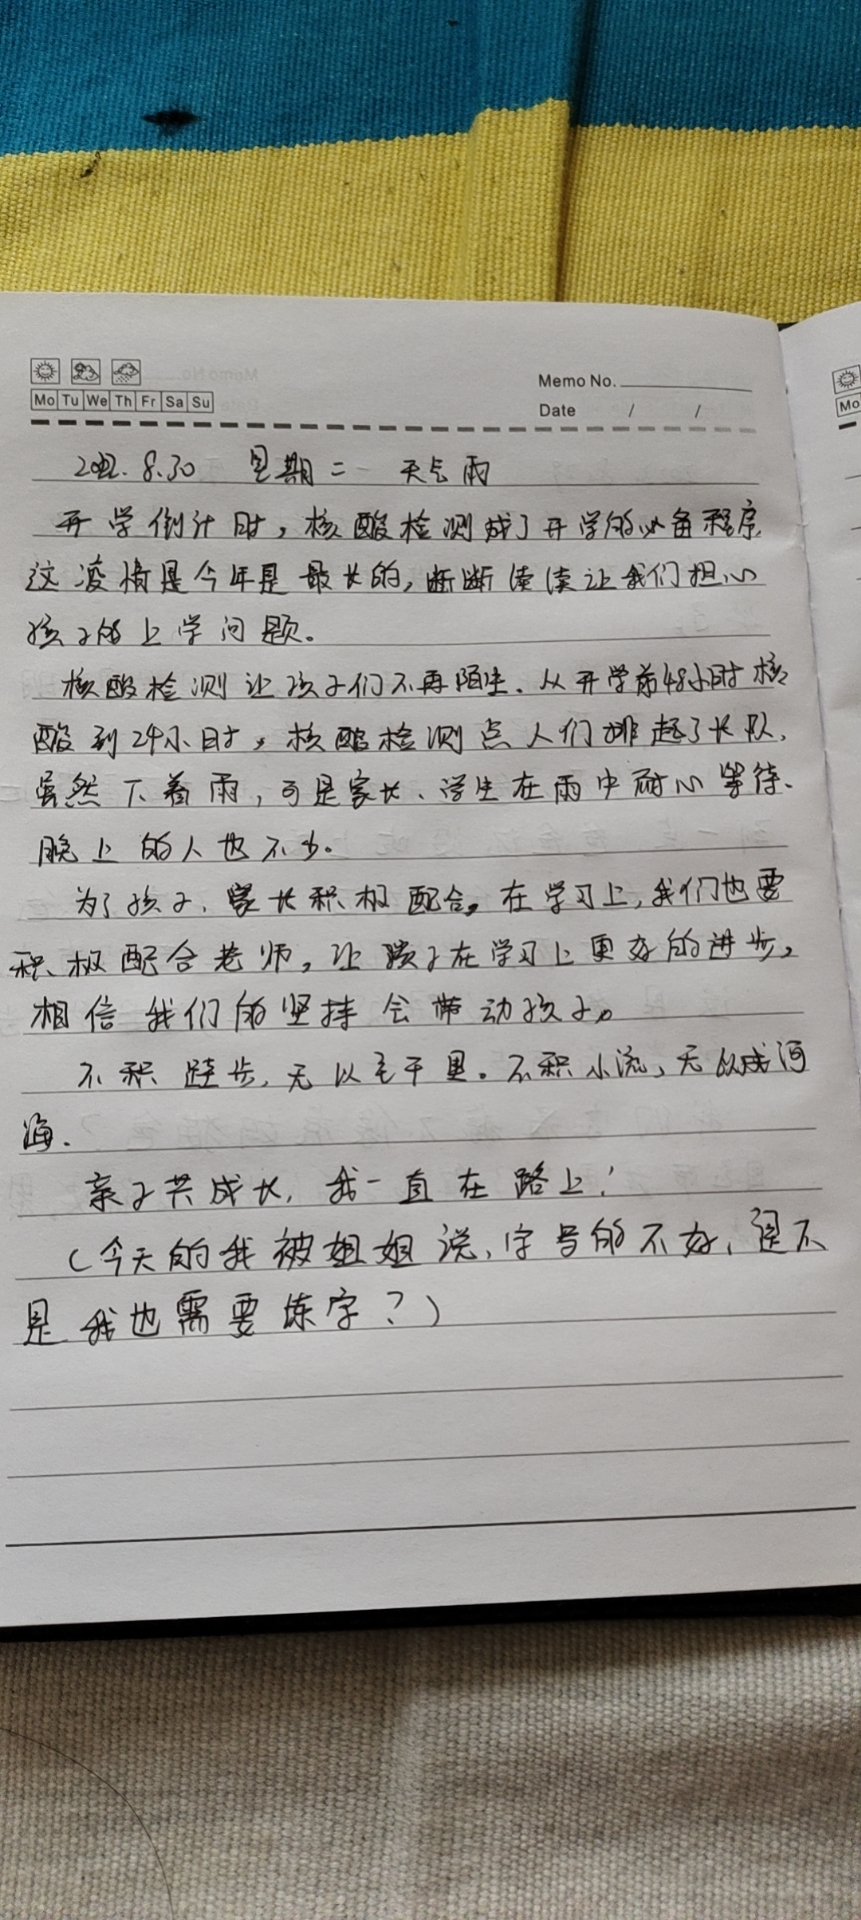 Memo No.
Mo Tu We Th Fr Sa Su
Date / /
2022.8.30 星期二 天气雨
开学倒计时，核酸检测成了开学的必备程序，
这疫情是今年是最长的，断断续续让我们担心
孩子的上学问题。
核酸检测让孩子们不再陌生、从开学前48小时核
酸到24小时，核酸检测点人们排起了长队，
虽然下着雨，可是家长、学生在雨中耐心等待、
晚上的人也不少。
为了孩子、家长积极配合。在学习上，我们也要
积极配合老师，让孩子在学习上更好的进步，
相信我们的坚持会带动孩子。
不积跬步，无以至千里。不积小流，无以成河
海.
亲子共成长，我一直在路上！
（今天的我被姐姐说、字写的不好、是不
是我也需要练字？）
Mo